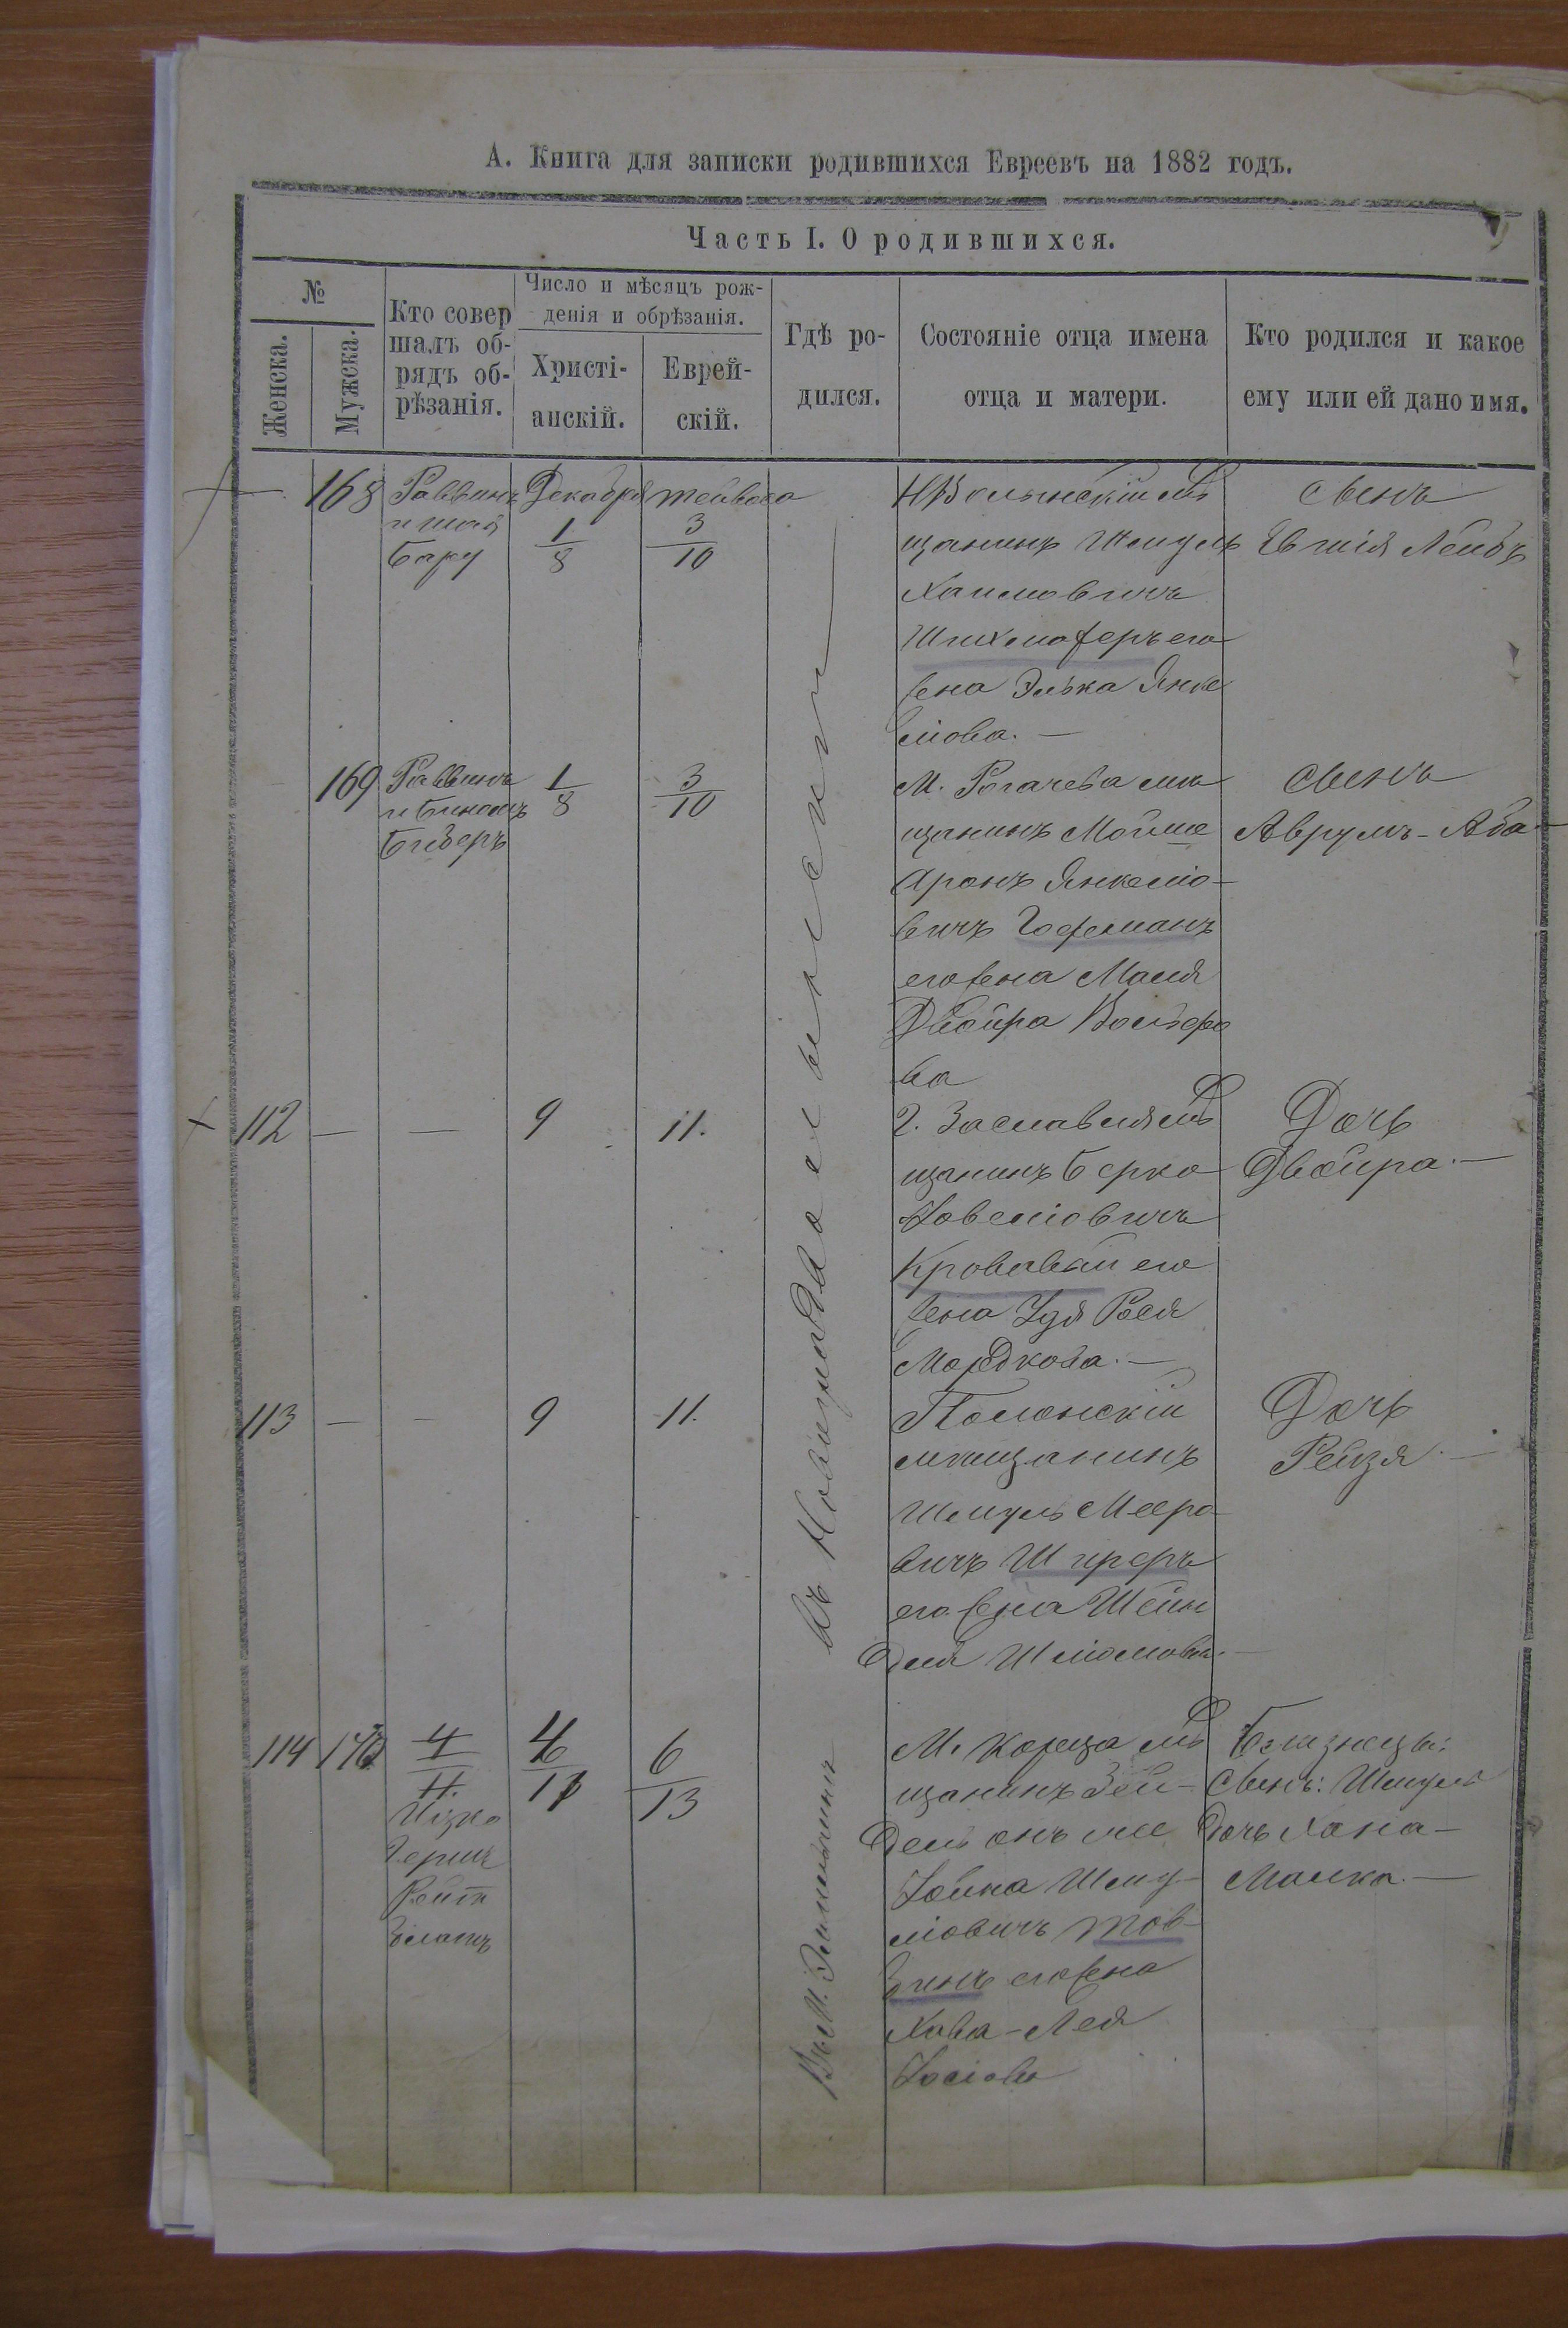 А. Книга для записки родившихся Евреевъ на 1882 годъ.
Часть I. О родившихся.
№
Женска.
Мужска.
Кто совер
шалъ об-
рядъ об-
рѣзанія.
Число и мѣсяцъ рож-
денія и обрѣзанія.
Христі-
анскій.
Еврей-
скій.
Гдѣ ро-
дился.
Состояніе отца имена
отца и матери.
Кто родился и какое
ему или ей дано имя.
168
Раввинъ
и
Бару
Декабря
1
8
тейвеса
3
10
Въ Новоградволынски
НВолынскій мѣ
щанинъ Шмуль
Хаимовичъ
его
жена Элька Янке
лiова. —
Сынъ
Евшія Лейбъ
169
Раввинъ
и
Бизеръ
1
8
3
10
М. Рогачева мѣ
щанинъ Мойше
Аронъ Янкеліо-
вичъ Гофманъ
его жена Маля
Двойра Вольфо
ва
Сынъ
Аврумъ-Аба
112 — —
9
11.
Г. Заславля мѣ
щанинъ Берко
Іовеліовичъ
Кровавый его
жена Удя Рося
Мордкова. —
Дочь
Двойра. —
113 — —
9
11.
Полонскій
мѣщанинъ
Шмуль Мееро
вичъ Шпреръ
его жена Шейн
для Шліомова. —
Дочь
Рейзя. —
114
170
4
11.
Ицко
Гершъ
Рейт
4
6
11
6
13
М. Корца мѣ
щанинъ Зей-
дель онъ же
Іойна Шму-
ліовичъ Тов-
бинъ его жена
Хава-Лея
Іосіова
Близнецы:
Сынъ: Шмуль
Дочь Хана-
Малка. —
Въ М.